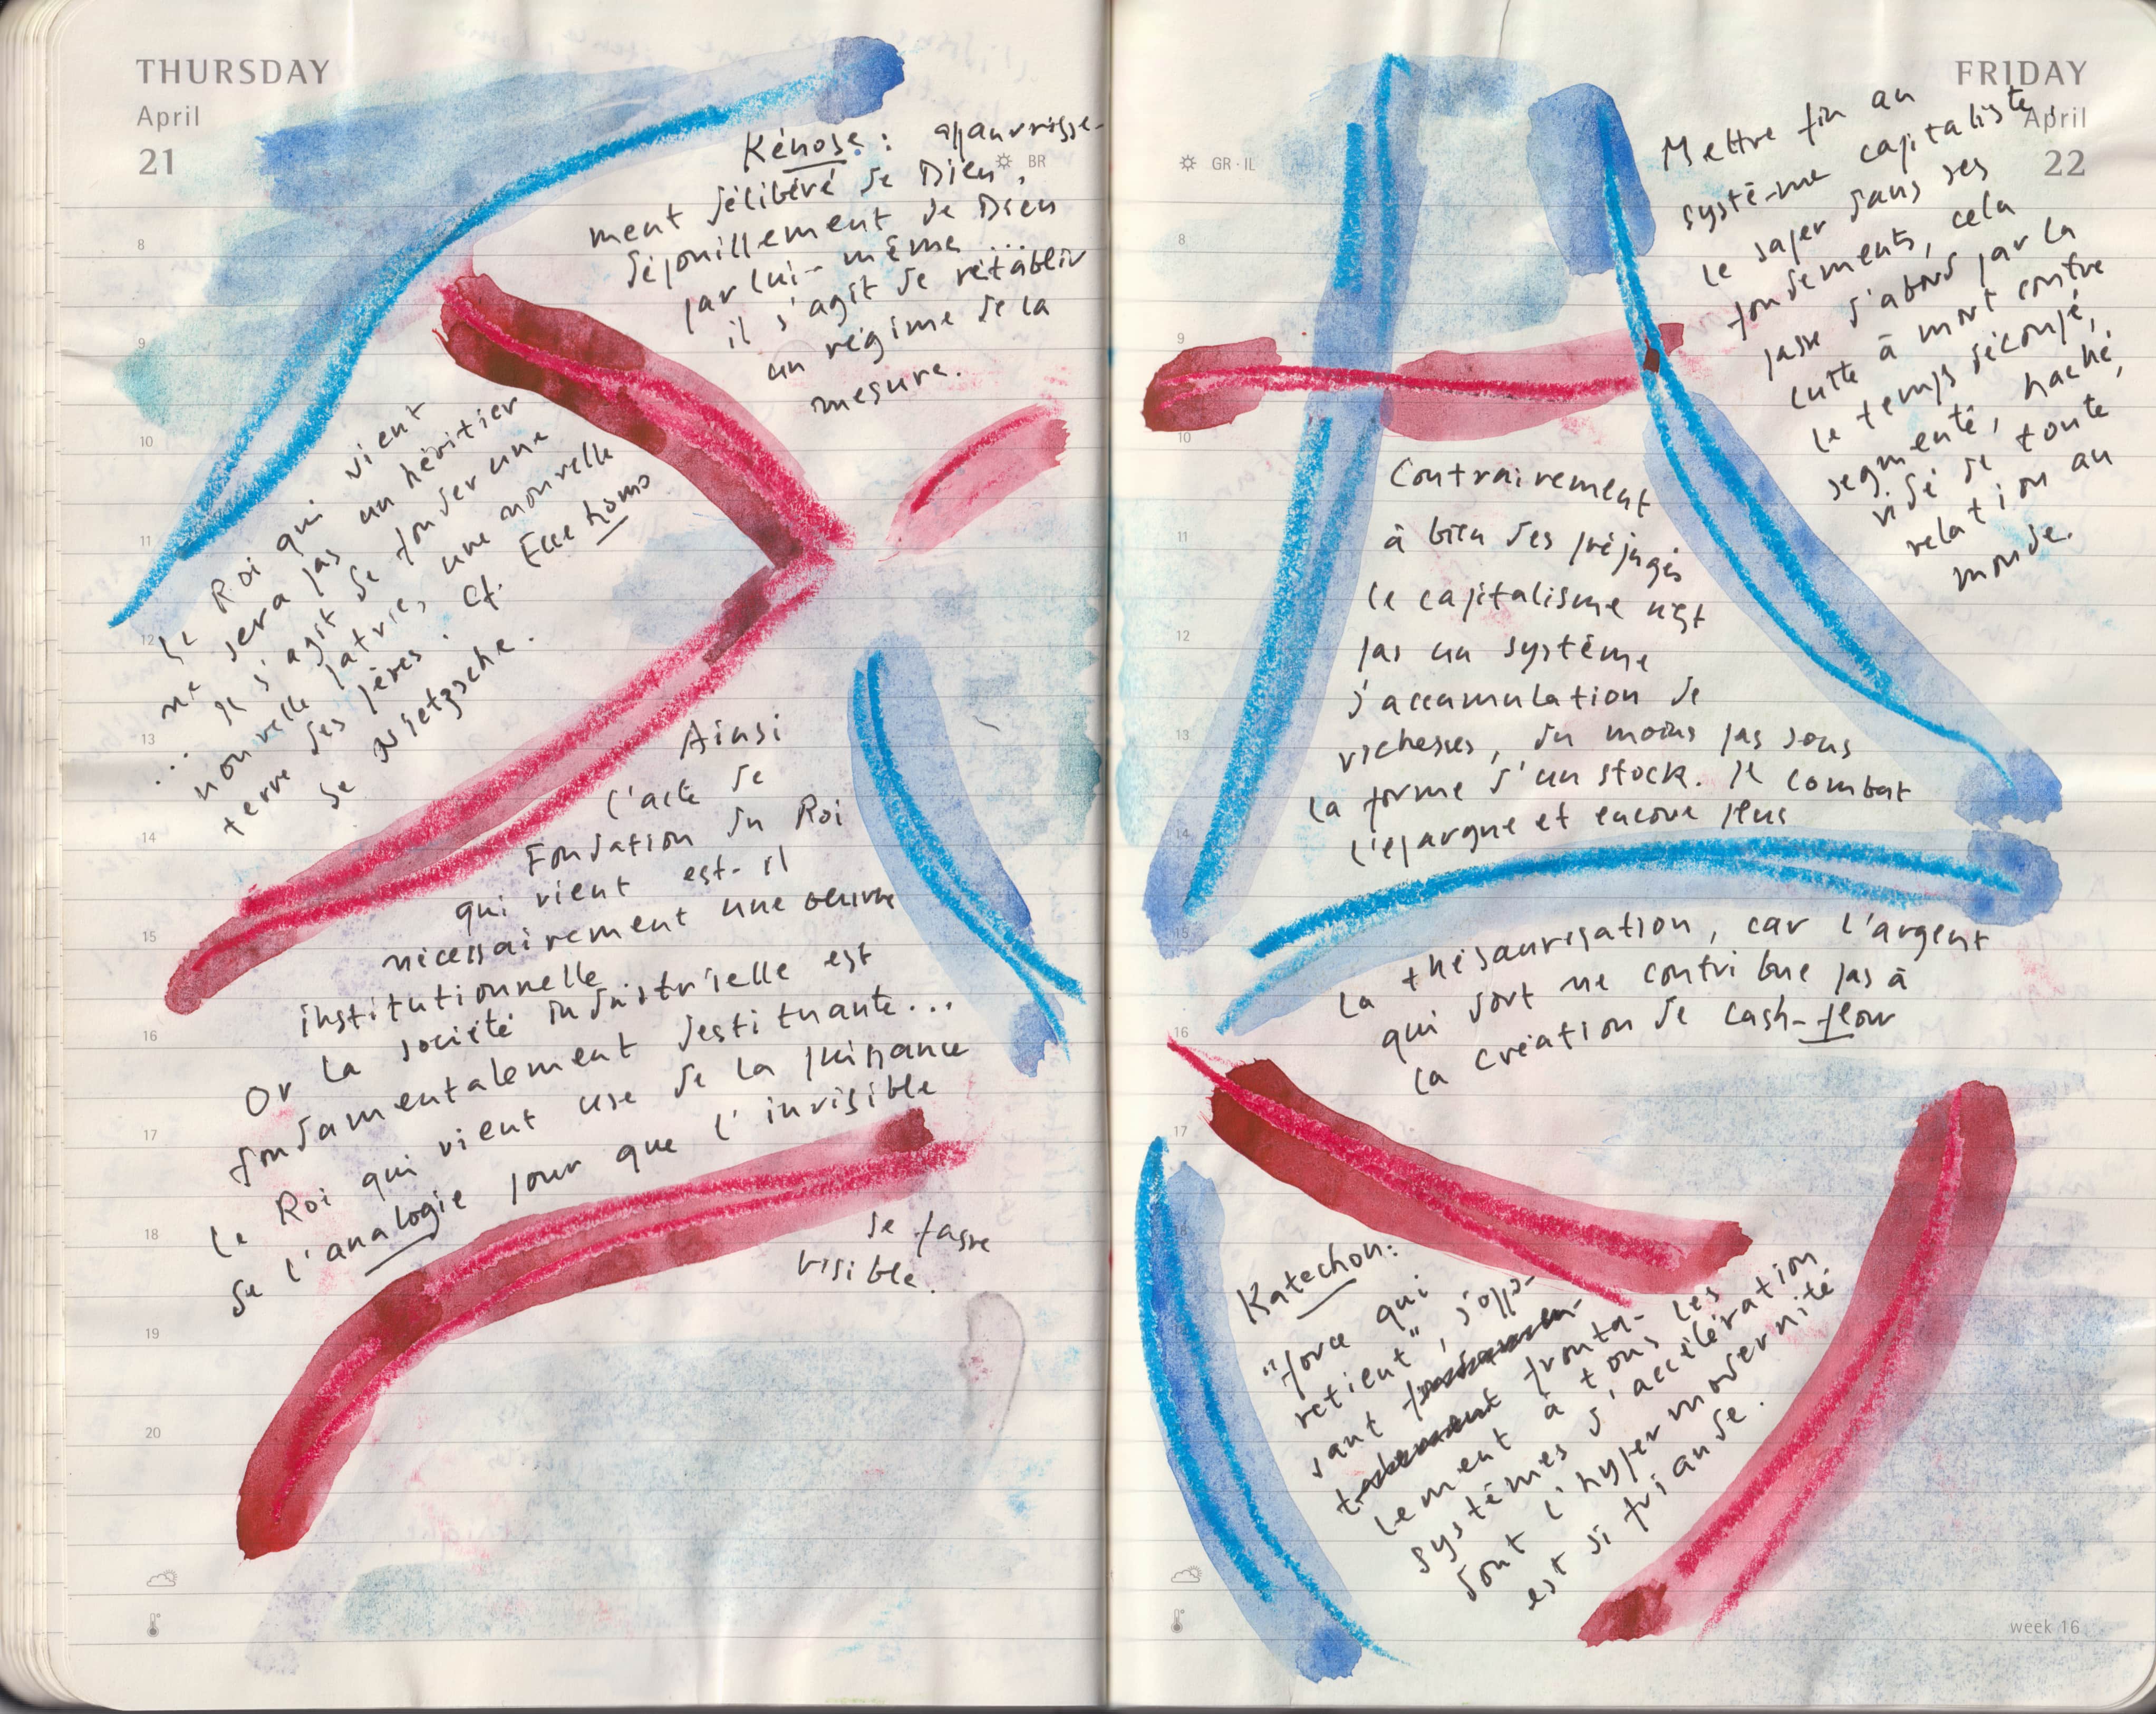 THURSDAY
April
21
BR
Kénose : appauvrisse-
ment délibéré de Dieu,
dépouillement de Dieu
par lui-même ...
il s'agit de rétablir
un régime de la
mesure.
8
9
10
11
12
13
14
15
16
17
18
19
20
Le Roi qui vient
ne sera pas un héritier
... Il s'agit de fonder une
nouvelle patrie, une nouvelle
terre des pères. Cf. Ecce homo
de Nietzsche.
Ainsi
l'acte de
Fondation du Roi
qui vient est-il
nécessairement une œuvre
institutionnelle
Or la société industrielle est
fondamentalement destituante...
Le Roi qui vient use de la puissance
de l'analogie pour que l'invisible
se fasse
visible.
FRIDAY
April
22
GR · IL
8
9
10
11
12
13
14
15
16
17
18
Mettre fin au
système capitaliste,
le saper dans ses
fondements, cela
passe d'abord par la
lutte à mort contre
le temps découpé,
segmenté, haché,
vidé de toute
relation au
monde.
Contrairement
à bien des préjugés
le capitalisme n'est
pas un système
d'accumulation de
richesses, du moins pas sous
la forme d'un stock. Il combat
l'épargne et encore plus
la thésaurisation, car l'argent
qui dort ne contribue pas à
la création de cash-flow
Katechon:
"force qui
retient", s'oppo-
sant
fronta-
lement à tous les
systèmes d'accélération
dont l'hypermodernité
est si friande.
week 16